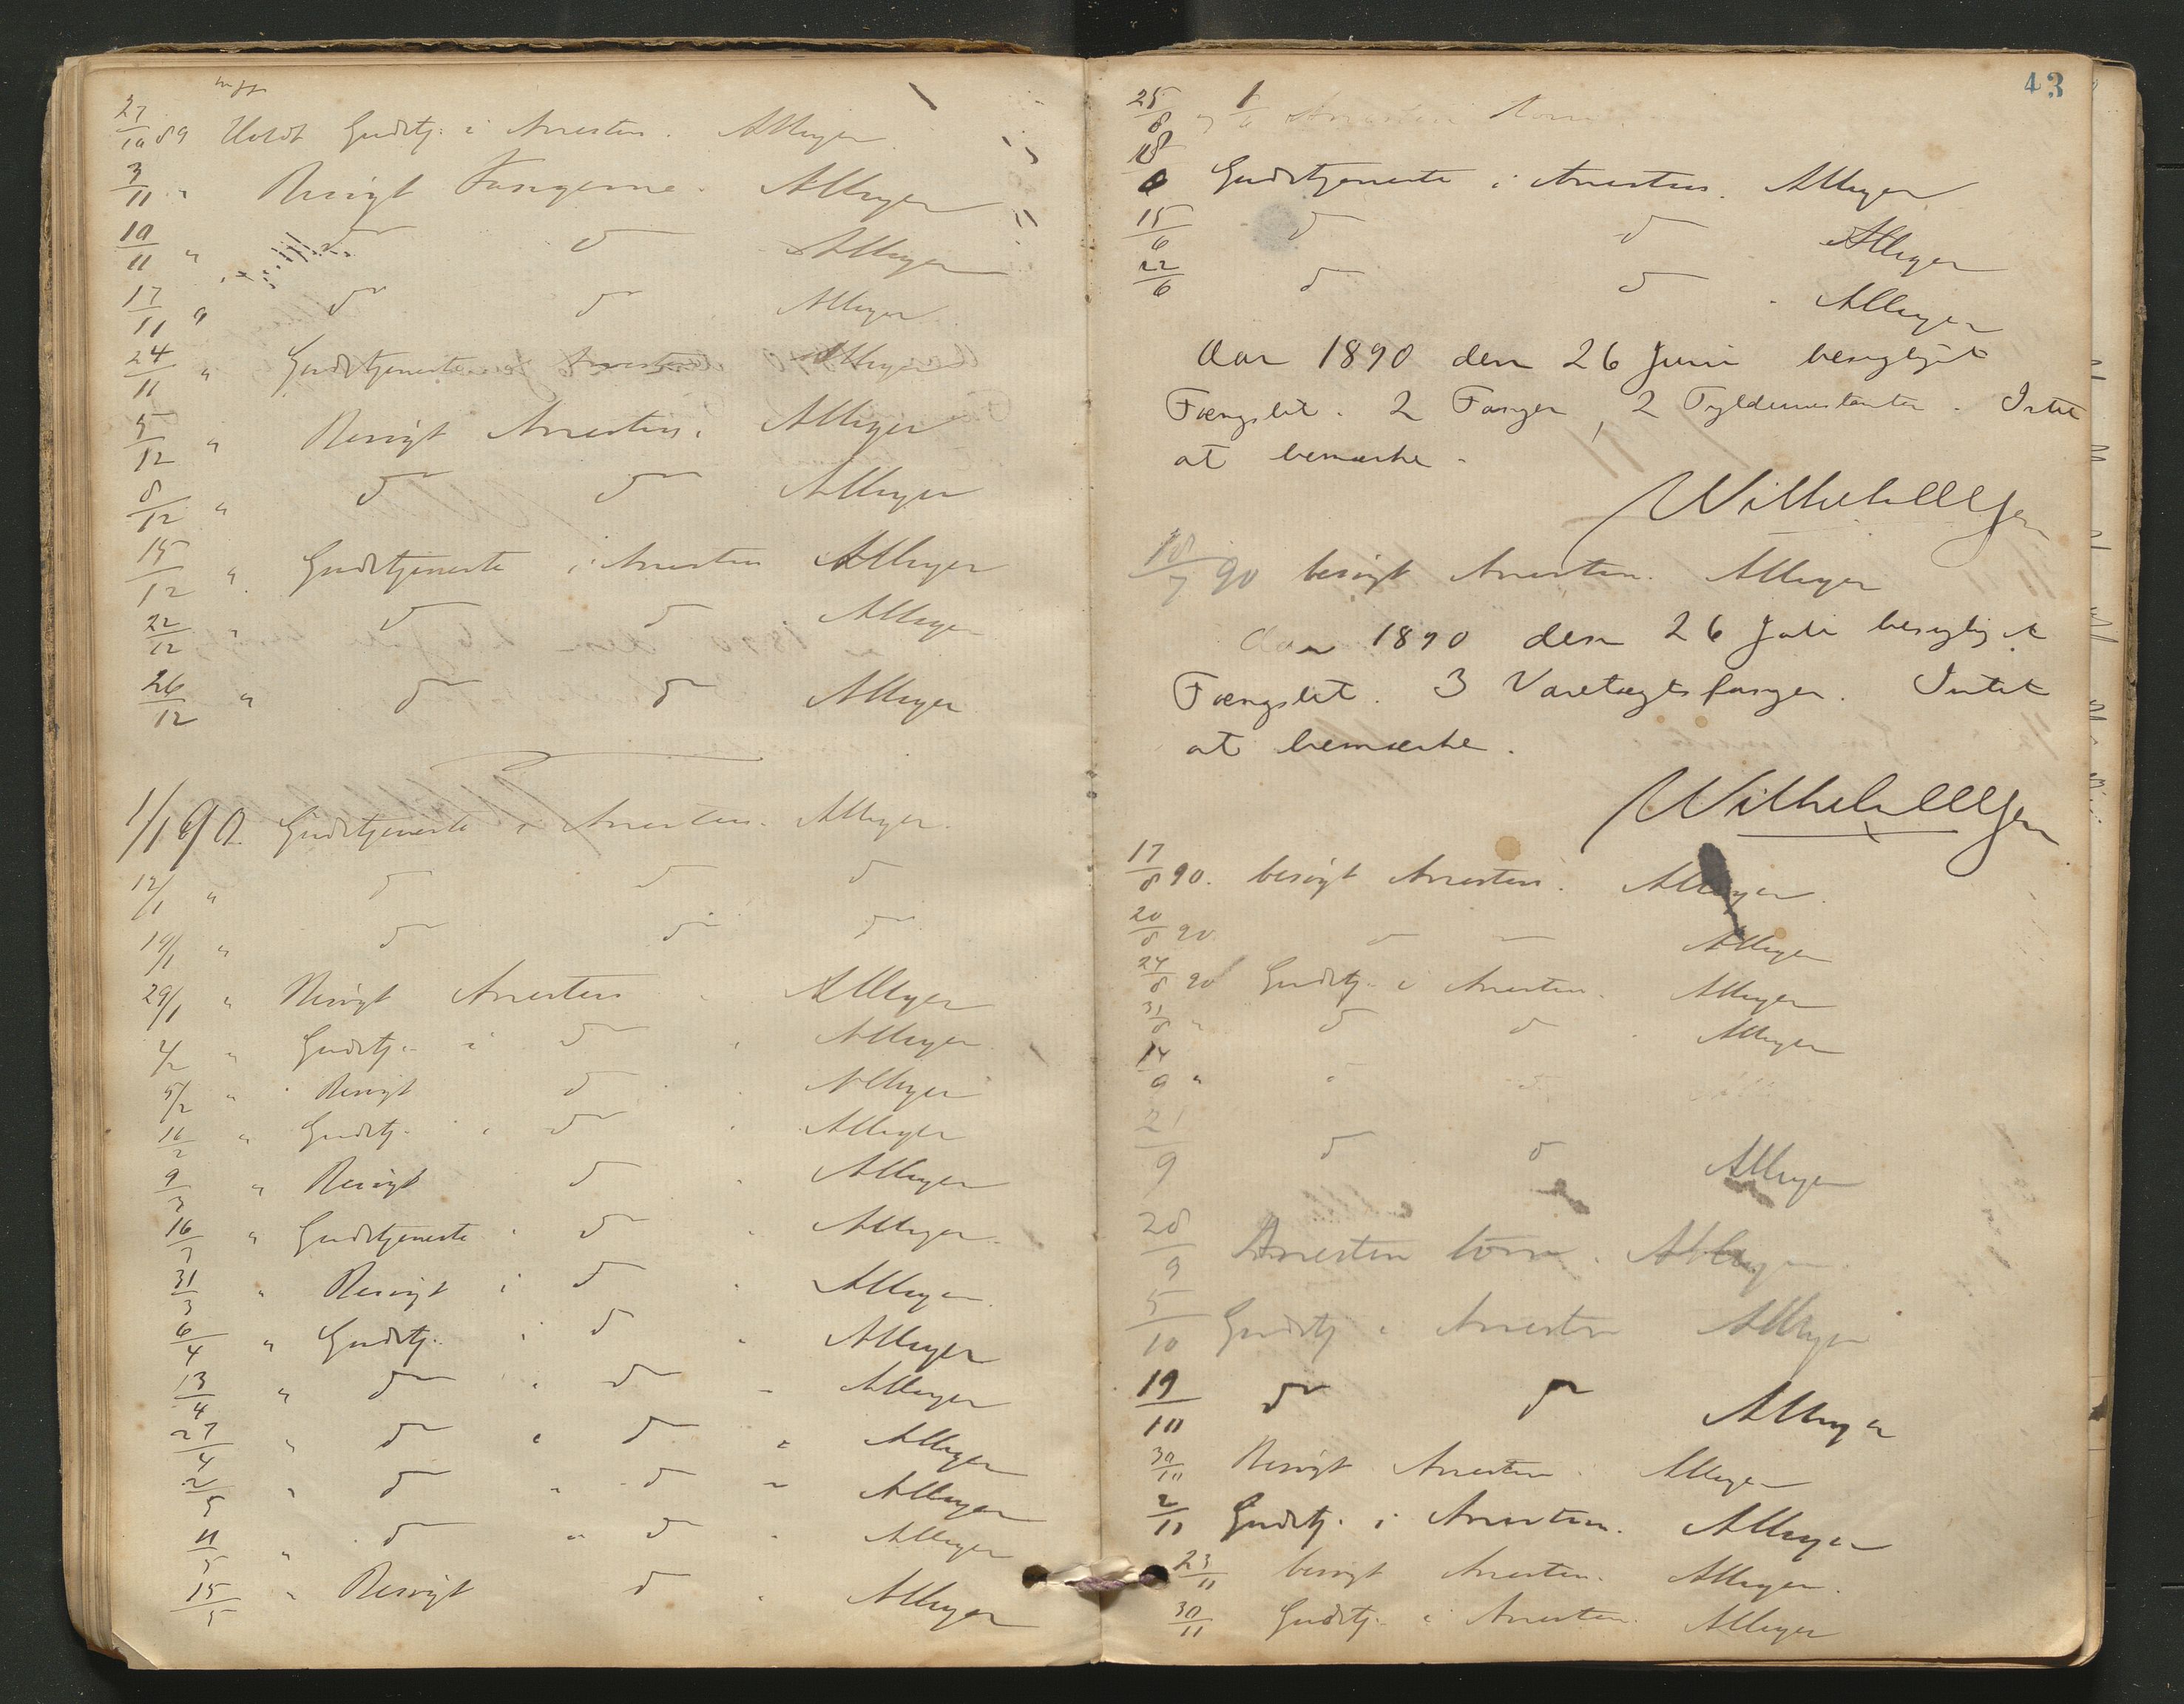 27/10 89 Holdt Gudstj. i Arresten. AMeyer
3/11 " Besøgt Fangerne. AMeyer
10/11 " do do AMeyer
17/11 " do do AMeyer
24/11 " Gudstjeneste i Arresten AMeyer
5/12 " Besøgt Arresten. AMeyer
8/12 " do do AMeyer
15/12 " Gudstjeneste i Arresten AMeyer
22/12 " do do . AMeyer
26/12 " do do AMeyer
1/1 90 Gudstjeneste i Arresten. AMeyer.
12/1 " do do do
19/1 " do do do
29/1 " Besøgt Arresten . AMeyer
2/2 " Gudstj. i do . AMeyer
5/2 " Besøgt do . AMeyer
16/2 " Gudstj. i do . AMeyer
9/3 " Besøgt do . AMeyer
16/3 " Gudstjeneste i do . AMeyer
31/3 " Besøgt i do . AMeyer
6/4 " Gudstj. i do . AMeyer
13/4 " do i do . AMeyer
27/4 " do i do . AMeyer
2/5 " do " do " AMeyer
11/5 " do " do . AMeyer
15/5 " Besøgt do . AMeyer
43
25/5 og 1/6 Arresten tom
Gudstjeneste i Arresten. AMeyer
15/6 do do AMeyer
22/6 do do . AMeyer
Aar 1890 den 26 Juni besigtiget
Fængslet. 2 Fanger, 2 Fyldearrestanter. Intet
at bemærke.
Wilhelm Olsen
18/7 90 besøgt Arresten. AMeyer
Aar 1890 den 26 Juli besigtiget
Fængslet. 3 Varetægtsfanger. Intet
at bemærke.
Wilhelm Olsen
17/8 90. besøgt Arresten. AMeyer.
20/8 90 AMeyer
24/8 90 Gudstj. i Arresten. AMeyer
31/8 " do do . AMeyer
14/9 " do do
21/9 do do AMeyer
28/9 Arresten tom. AMeyer
5/10 Gudstj i Arresten AMeyer
19/10 do do AMeyer
30/10 Besøgt Arresten. AMeyer
2/11 Gudstj. i Arresten. AMeyer
23/11 besøgt Arresten. AMeyer.
30/11 Gudstj. i Arresten. AMeyer